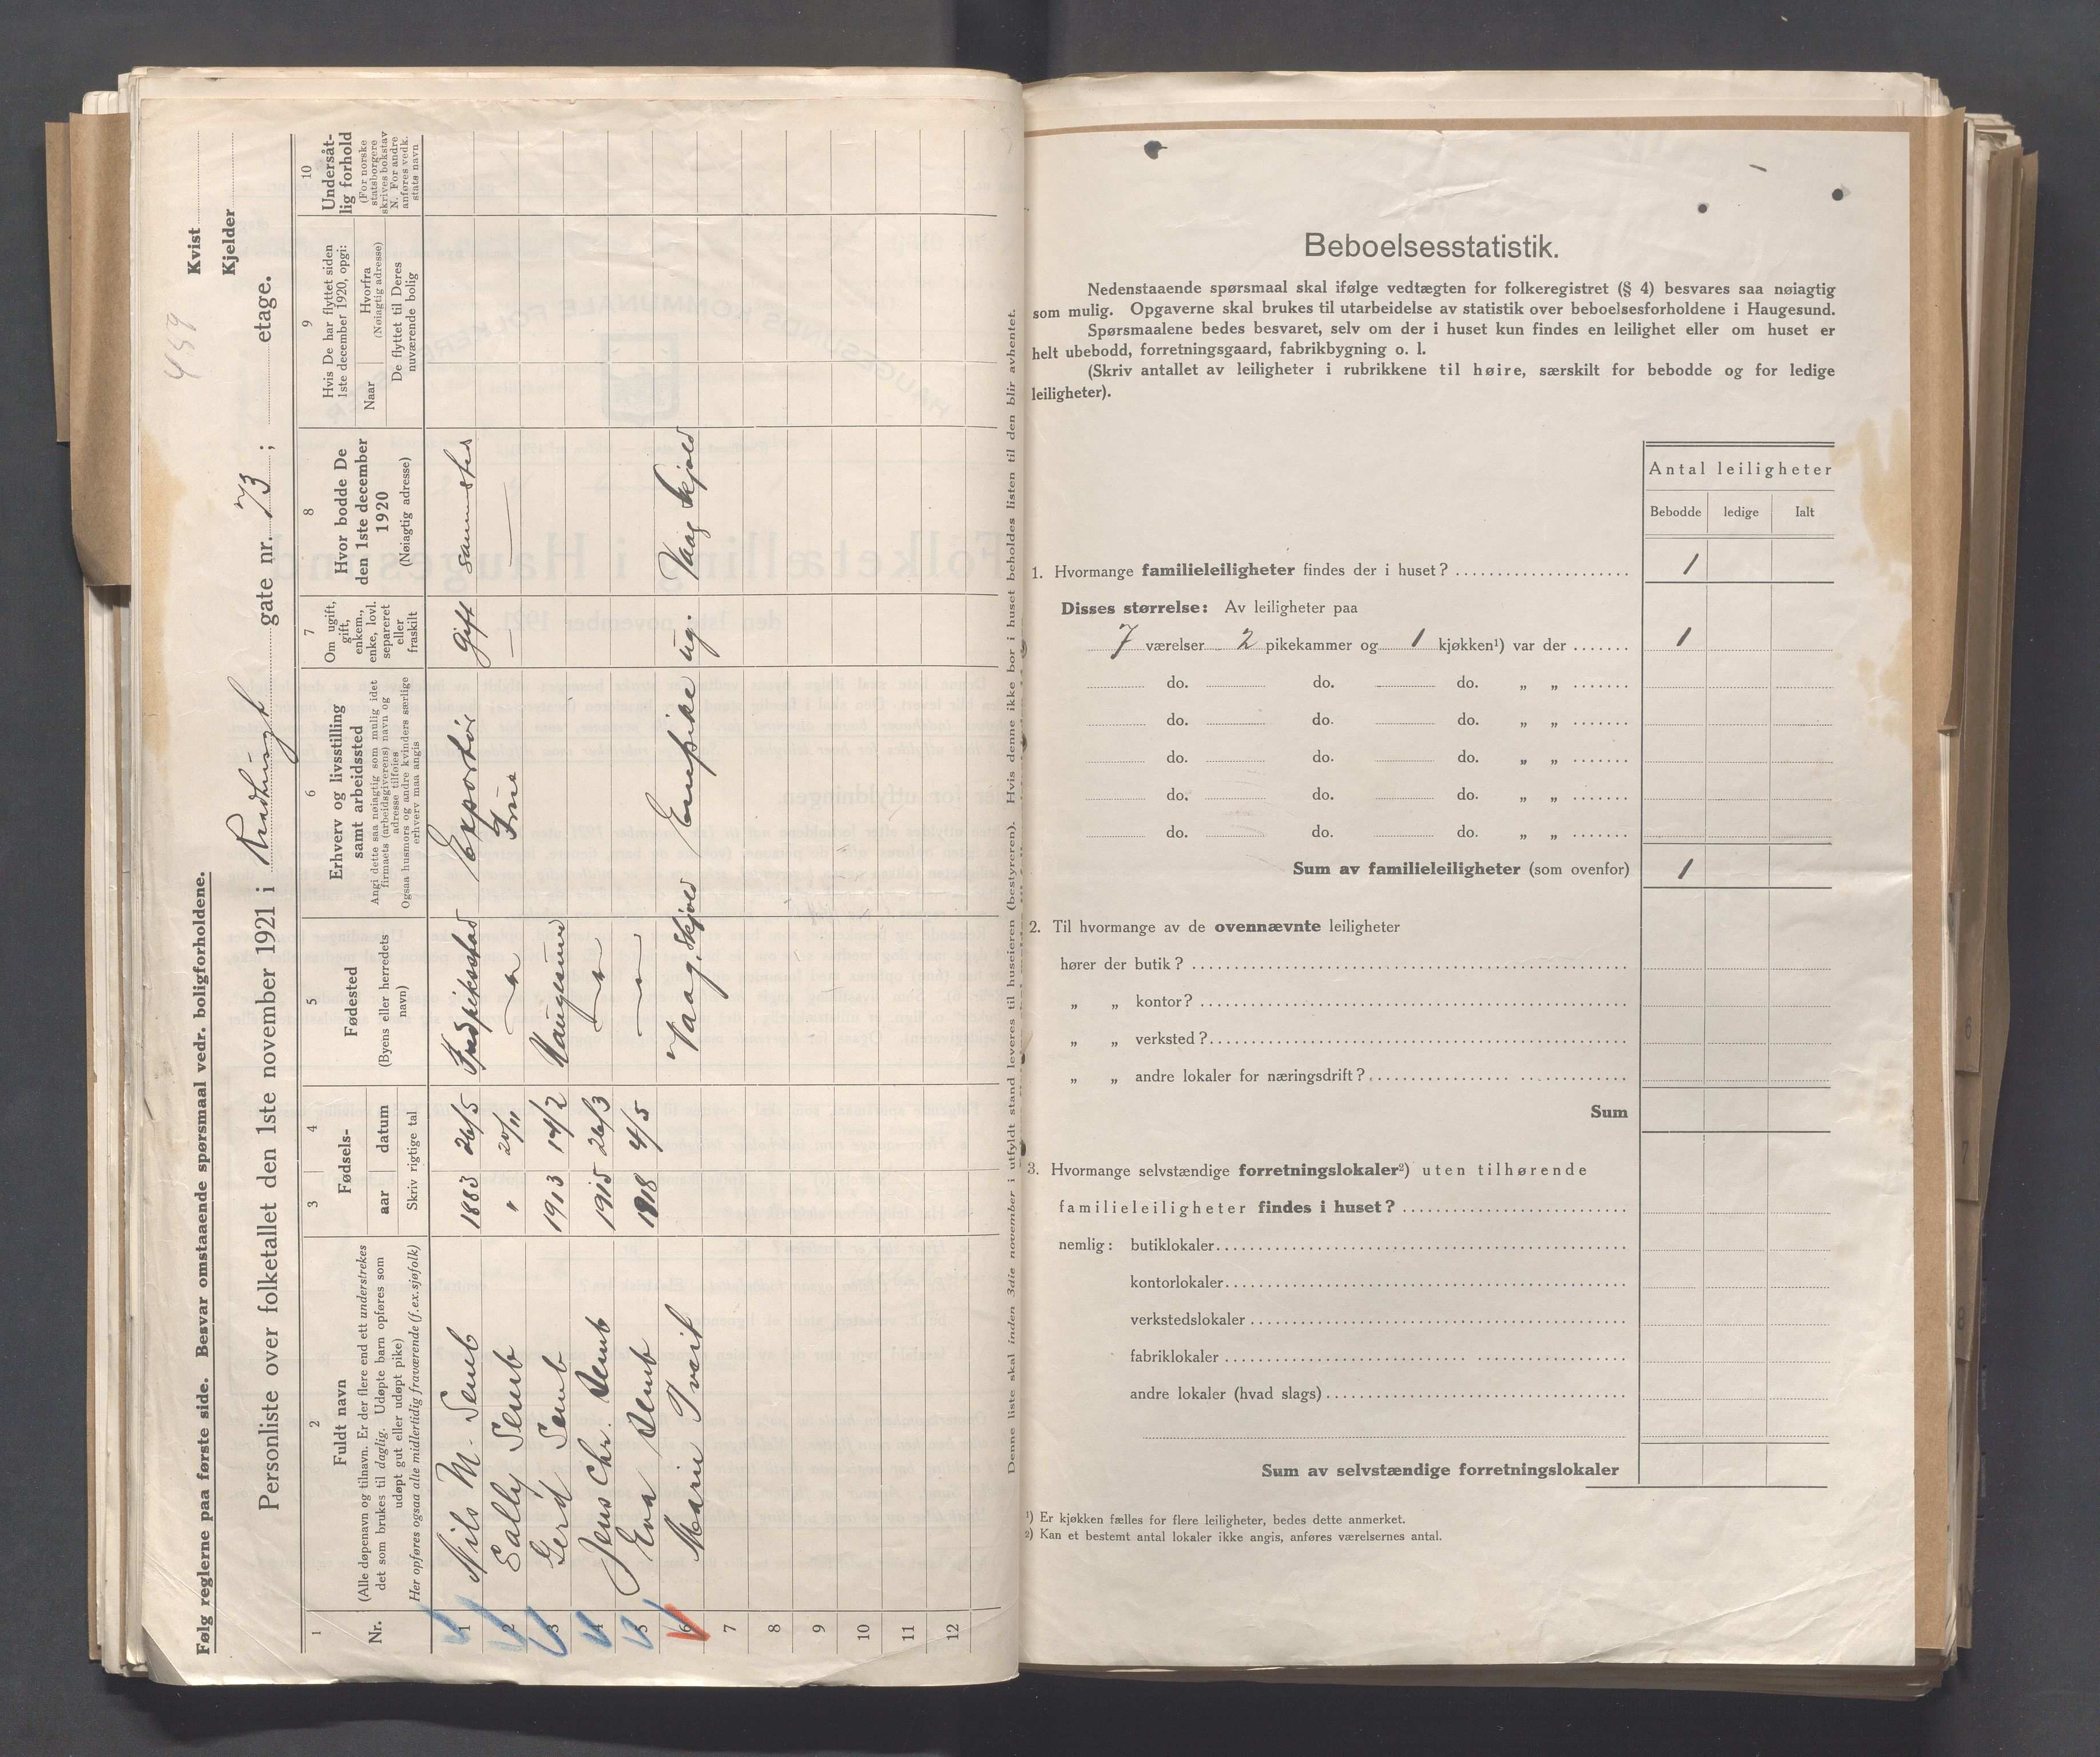 Følg reglerne paa første side. Besvar omstaaende spørsmaal vedr. boligforholdene.
Kvist
Kjelder
Personliste over folketallet den 1ste november 1921 i gate nr. 73 ; etage.
1 2 3 4 5 6 7 8 9 10
Nr.
Fuldt navn
(Alle døpenavn og tilnavn. Er der flere end ett understrekes
det som brukes til daglig. Udøpte barn opføres som
udøpt gut eller udøpt pike)
Her opføres ogsaa alle midlertidig fraværende (f.ex.sjøfolk)
Fødsels-
aar datum
Skriv rigtige tal
Fødested
(Byens eller herredets
navn)
Erhverv og livsstilling
samt arbeidssted
Angi dette saa nøiagtig som mulig idet
firmaets (arbeidsgiverens) navn og
adresse tilføies
Ogsaa husmors og andre kvinders særlige
erhverv maa angis
Om ugift,
gift,
enkem.,
enke, lovl.
separeret
eller
fraskilt
Hvor bodde De
den 1ste december
1920
(Nøiagtig adresse)
Hvis De har flyttet siden
1ste december 1920, opgi:
Naar
Hvorfra
(Nøiagtig adresse)
De flyttet til Deres
nuværende bolig
Undersåt-
lig forhold
(For norske
statsborgere
skrives bokstav
N. For andre
anføres vedk.
stats navn
1 Nils M. Semb 1883 26/5 Fredrikstad Exportør Gift sammesteds
2 Sally Semb " 20/11 " Frue — —
3 Gerd Semb 1913 14/2 Haugesund
4 Jens Chr. Semb 1915 26/3 "
5 Eva Semb 1918 4/5 —
6 Marie Tveit Vaag, Skjold Enepike ug. Vaag Skjold
7
8
9
10
11
12
Denne liste skal inden 3die november i utfyldt stand leveres til huseieren (bestyreren). Hvis denne ikke bor i huset beholdes listen til den blir avhentet.
Beboelsesstatistik.
Nedenstaaende spørsmaal skal ifølge vedtægten for folkeregistret (§ 4) besvares saa nøiagtig
som mulig. Opgaverne skal brukes til utarbeidelse av statistik over beboelsesforholdene i Haugesund.
Spørsmaalene bedes besvaret, selv om der i huset kun findes en leilighet eller om huset er
helt ubebodd, forretningsgaard, fabrikbygning o. l.
(Skriv antallet av leiligheter i rubrikkene til høire, særskilt for bebodde og for ledige
leiligheter).
Antal leiligheter
Bebodde ledige Ialt
1. Hvormange familieleiligheter findes der i huset? 1
Disses størrelse: Av leiligheter paa
7 værelser 2 pikekammer og 1 kjøkken¹) var der 1
do. do. do. „ „
do. do. do. „ „
do. do. do. „ „
do. do. do. „ „
do. do. do. „ „
Sum av familieleiligheter (som ovenfor) 1
2. Til hvormange av de ovennævnte leiligheter
hører der butik?
„ „ kontor?
„ „ verksted?
„ „ andre lokaler for næringsdrift?
Sum
3. Hvormange selvstændige forretningslokaler²) uten tilhørende
familieleiligheter findes i huset?
nemlig: butiklokaler
kontorlokaler
verkstedslokaler
fabriklokaler
andre lokaler (hvad slags)
Sum av selvstændige forretningslokaler
¹) Er kjøkken fælles for flere leiligheter, bedes dette anmerket.
²) Kan et bestemt antal lokaler ikke angis, anføres værelsernes antal.